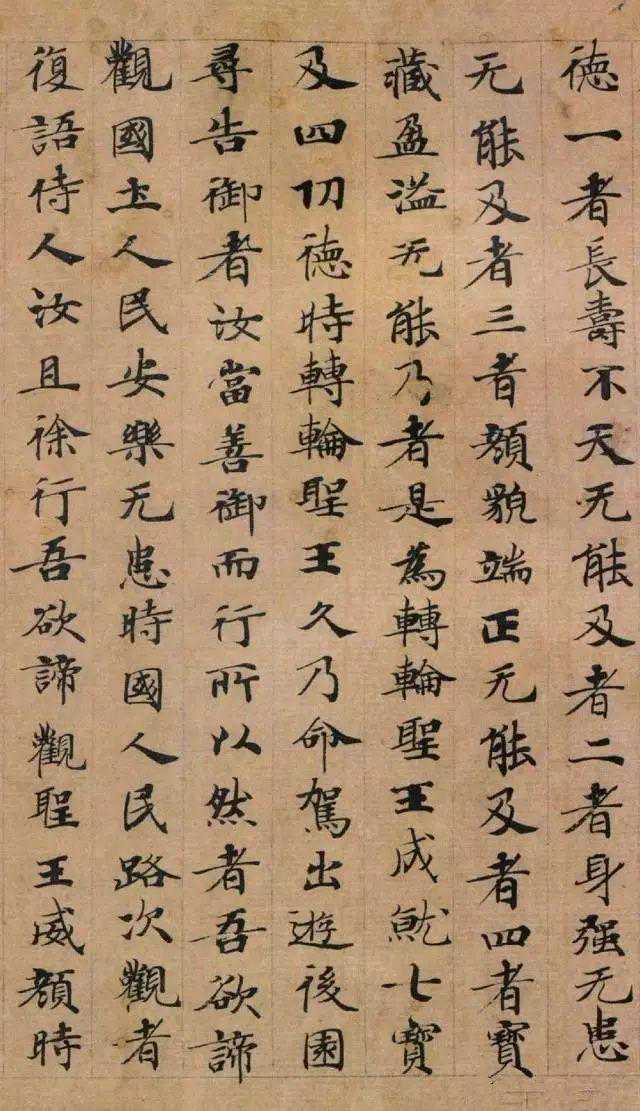 德一者長壽不夭无能及者二者身强无患
无能及者三者顏貌端正无能及者四者寶
藏盈溢无能及者是為轉輪聖王成就七寶
及四功德時轉輪聖王久乃命駕出遊後園
尋告御者汝當善御而行所以然者吾欲諦
觀國土人民安樂无患時國人民路次觀者
復語侍人汝且徐行吾欲諦觀聖王威顏時